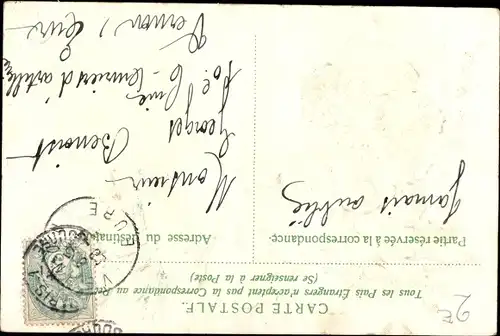 CARTE POSTALE.
Tous les Pays Étrangers n'acceptent pas la Correspondance au Re
(Se renseigner à la Poste)
Partie réservée à la correspondance.
Adresse du Destinat
Jamais oublié
Monsieur
Georges Benoist
6e
d'artillerie
Vernon) Eure
EURE
PARIS
2E